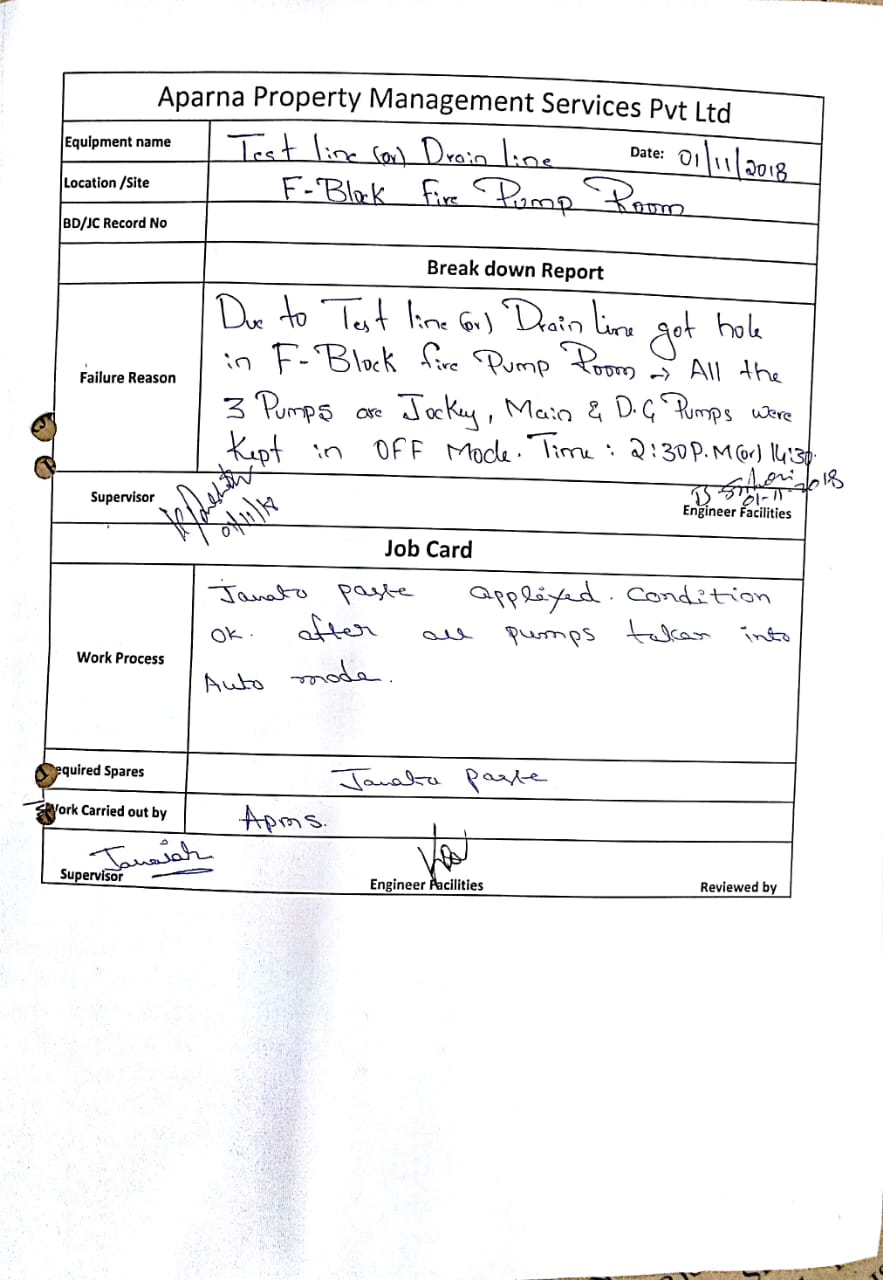 Aparna Property Management Services Pvt Ltd
Equipment name Test line (or) Drain line Date: 01/11/2018
Location /Site F-Block fire Pump Room
BD/JC Record No
Break down Report
Failure Reason
Due to Test line (or) Drain line got hole
in F-Block fire Pump Room → All the
3 Pumps are Jockey, Main & D.G Pumps were
Kept in OFF Mode. Time : 2:30P.M (or) 14:30.
Supervisor 01/11/18
01-11-2018
Engineer Facilities
Job Card
Work Process
Janata paste appleyed. Condition
OK. after all pumps taken into
Auto mode.
equired Spares Janata paste
Work Carried out by Apms.
Janaiah
Supervisor Engineer Facilities Reviewed by